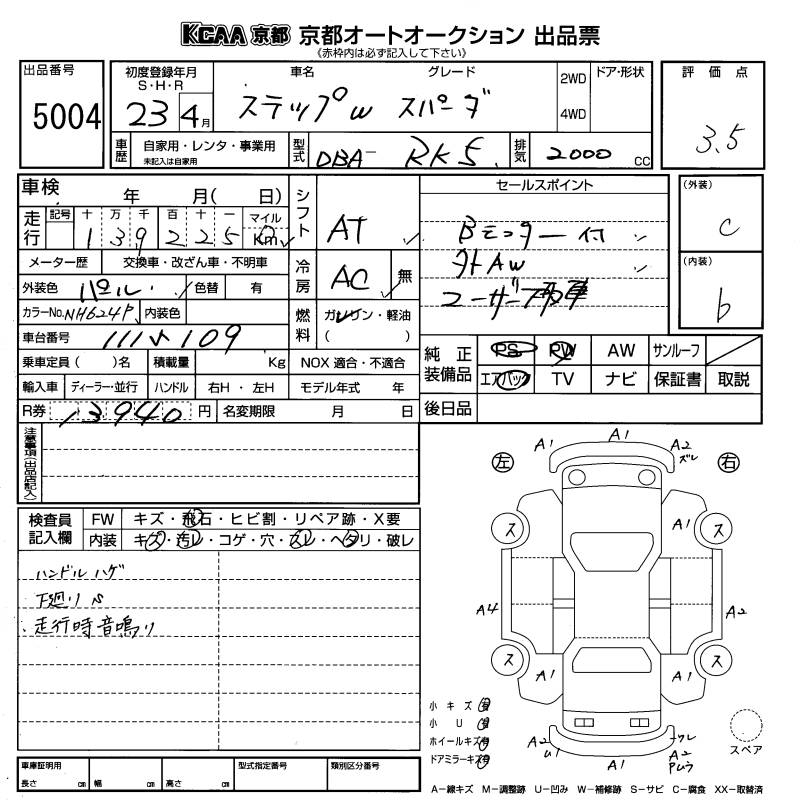 KCAA 京都 京都オートオークション 出品票
《赤枠内は必ず記入して下さい》
出品番号
5004
初度登録年月
S・H・R
23 4月
車名 グレード
ステップW スパーダ
2WD
4WD
ドア・形状
評価点
3.5
車歴
自家用・レンタ・事業用
未記入は自家用
型式
DBA- RK5
排気
2000 cc
車検 年 月( 日)
走行
記号 十 万 千 百 十 一 マイル
1 3 9 2 2 5 Km
シフト
AT
セールスポイント
Bモニター付
外AW
ユーザー下取車
(外装)
C
(内装)
b
メーター歴 交換車・改ざん車・不明車
外装色 パール 色替 有
カラーNo. NH624P 内装色
冷房
AC 無
燃料
ガソリン・軽油
( )
車台番号
乗車定員 ( )名 積載量 Kg NOX 適合・不適合
輸入車 ディーラー・並行 ハンドル 右H ・ 左H モデル年式 年
R券 13940 円 名変期限 月 日
純正装備品
PS PW AW サンルーフ
エアバック TV ナビ 保証書 取説
後日品
注意事項(出品店記入)
検査員記入欄
FW キズ・飛石・ヒビ割・リペア跡・X要
内装 キズ・汚レ・コゲ・穴・スレ・ヘタリ・破レ
ハンドルハゲ
下廻りS
走行時音鳴り
左 右
A1 A1 A2
ズレ
ス A1 ス
A4 A2
ス A1 A1 ス
小キズ 有
小U 有
ホイールキズ 有
ドアミラーキズ 有
A2
U1
A1
A2
スペア
車庫証明用 型式指定番号 類別区分番号
長さ cm 幅 cm 高さ cm
A−線キズ M−調整跡 U−凹み W−補修跡 S−サビ C−腐食 XX−取替済